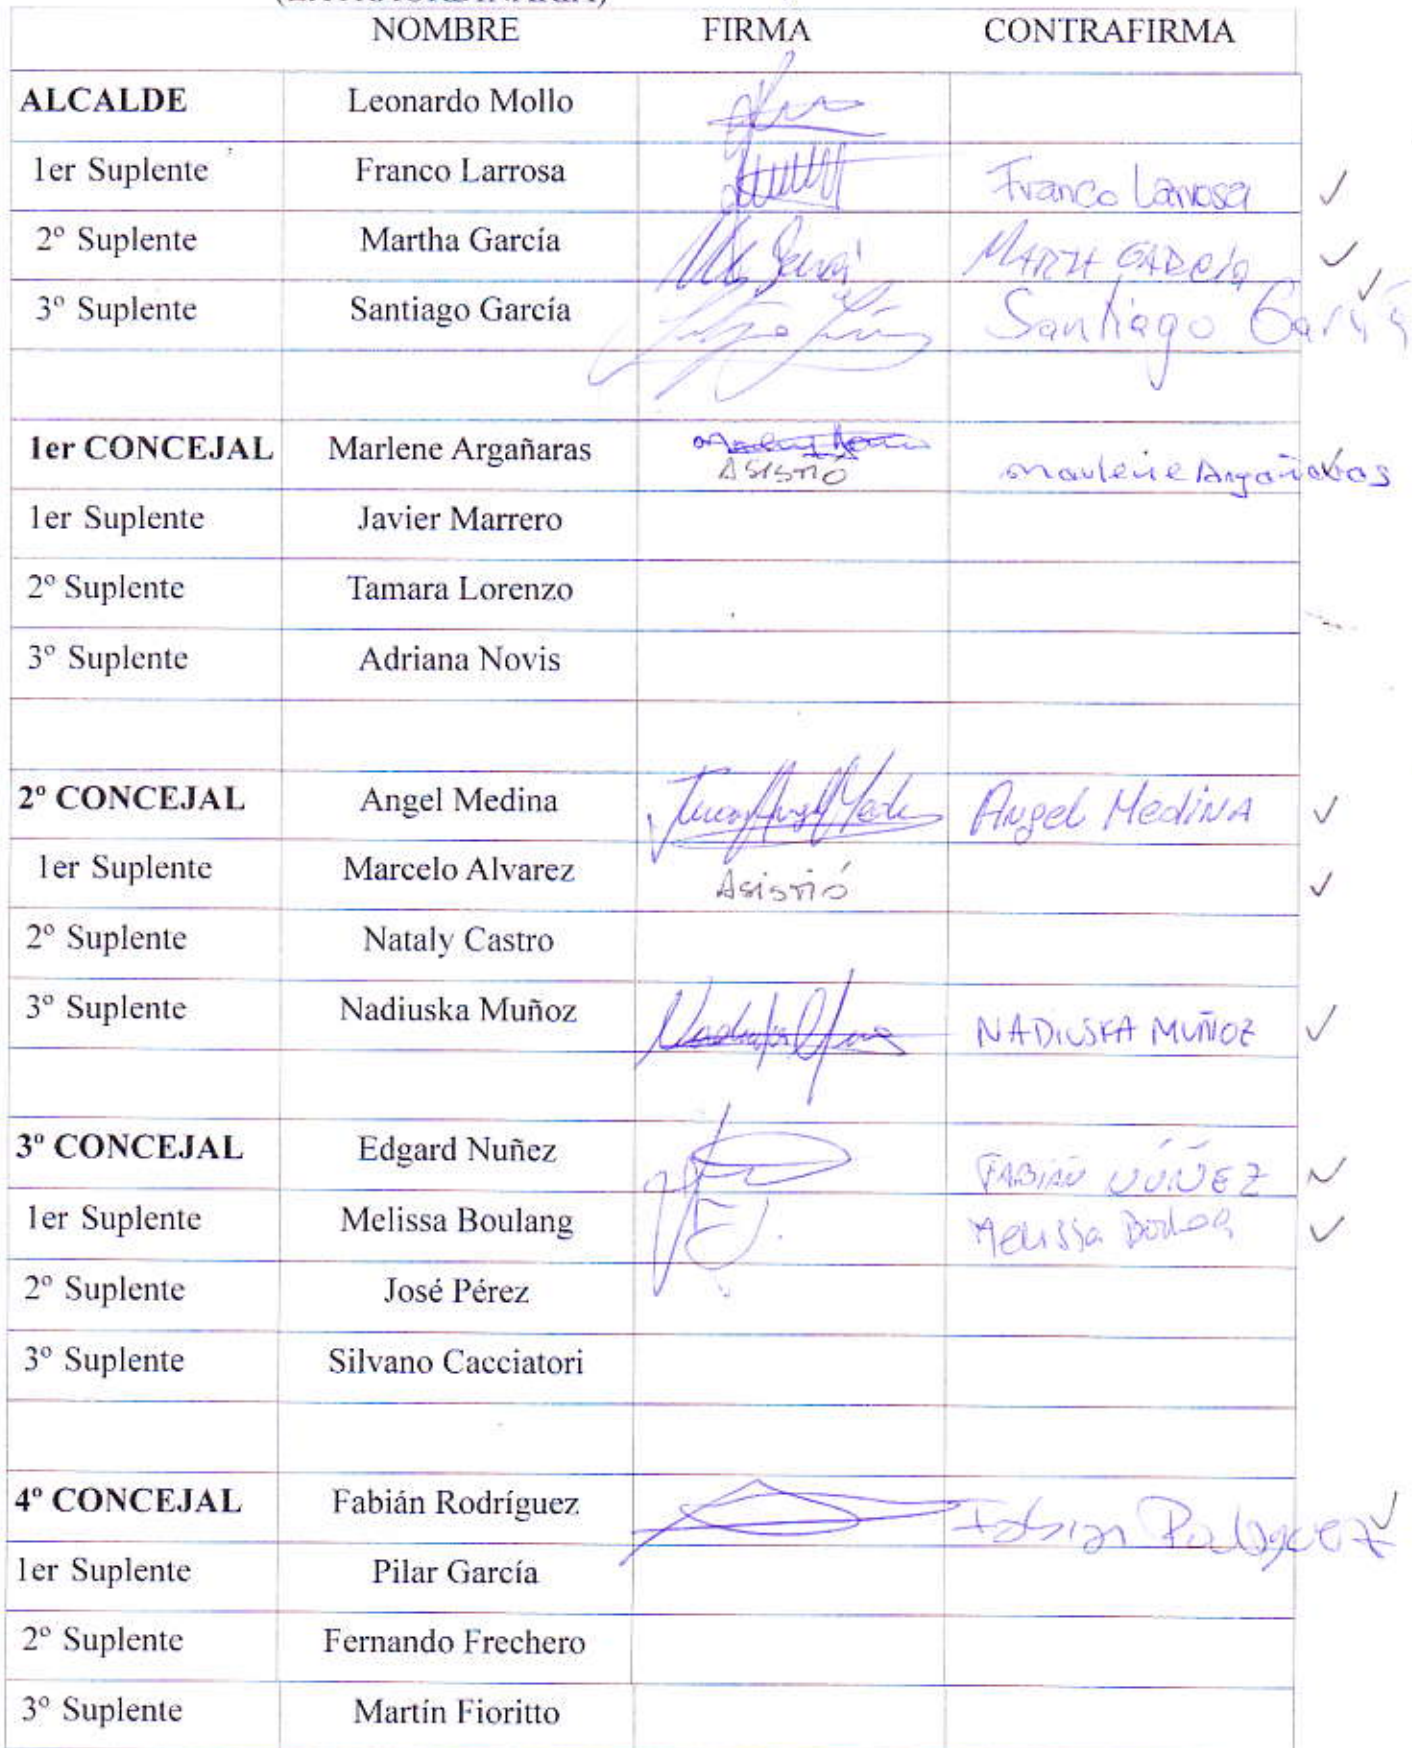 NOMBRE FIRMA CONTRAFIRMA
ALCALDE Leonardo Mollo
1er Suplente Franco Larrosa Franco Larrosa ✓
2º Suplente Martha García MARTH GARCIA ✓
3º Suplente Santiago García Santiago García ✓
1er CONCEJAL Marlene Argañaras ASISTIÓ Marlene Argañaras ✓
1er Suplente Javier Marrero
2º Suplente Tamara Lorenzo
3º Suplente Adriana Novis
2º CONCEJAL Angel Medina Angel Medina ✓
1er Suplente Marcelo Alvarez Asistió ✓
2º Suplente Nataly Castro
3º Suplente Nadiuska Muñoz NADIUSKA MUÑOZ ✓
3º CONCEJAL Edgard Nuñez FABIÁN NÚÑEZ ✓
1er Suplente Melissa Boulang Melissa ✓
2º Suplente José Pérez
3º Suplente Silvano Cacciatori
4º CONCEJAL Fabián Rodríguez Fabian Rodriguez ✓
1er Suplente Pilar García
2º Suplente Fernando Frechero
3º Suplente Martín Fioritto